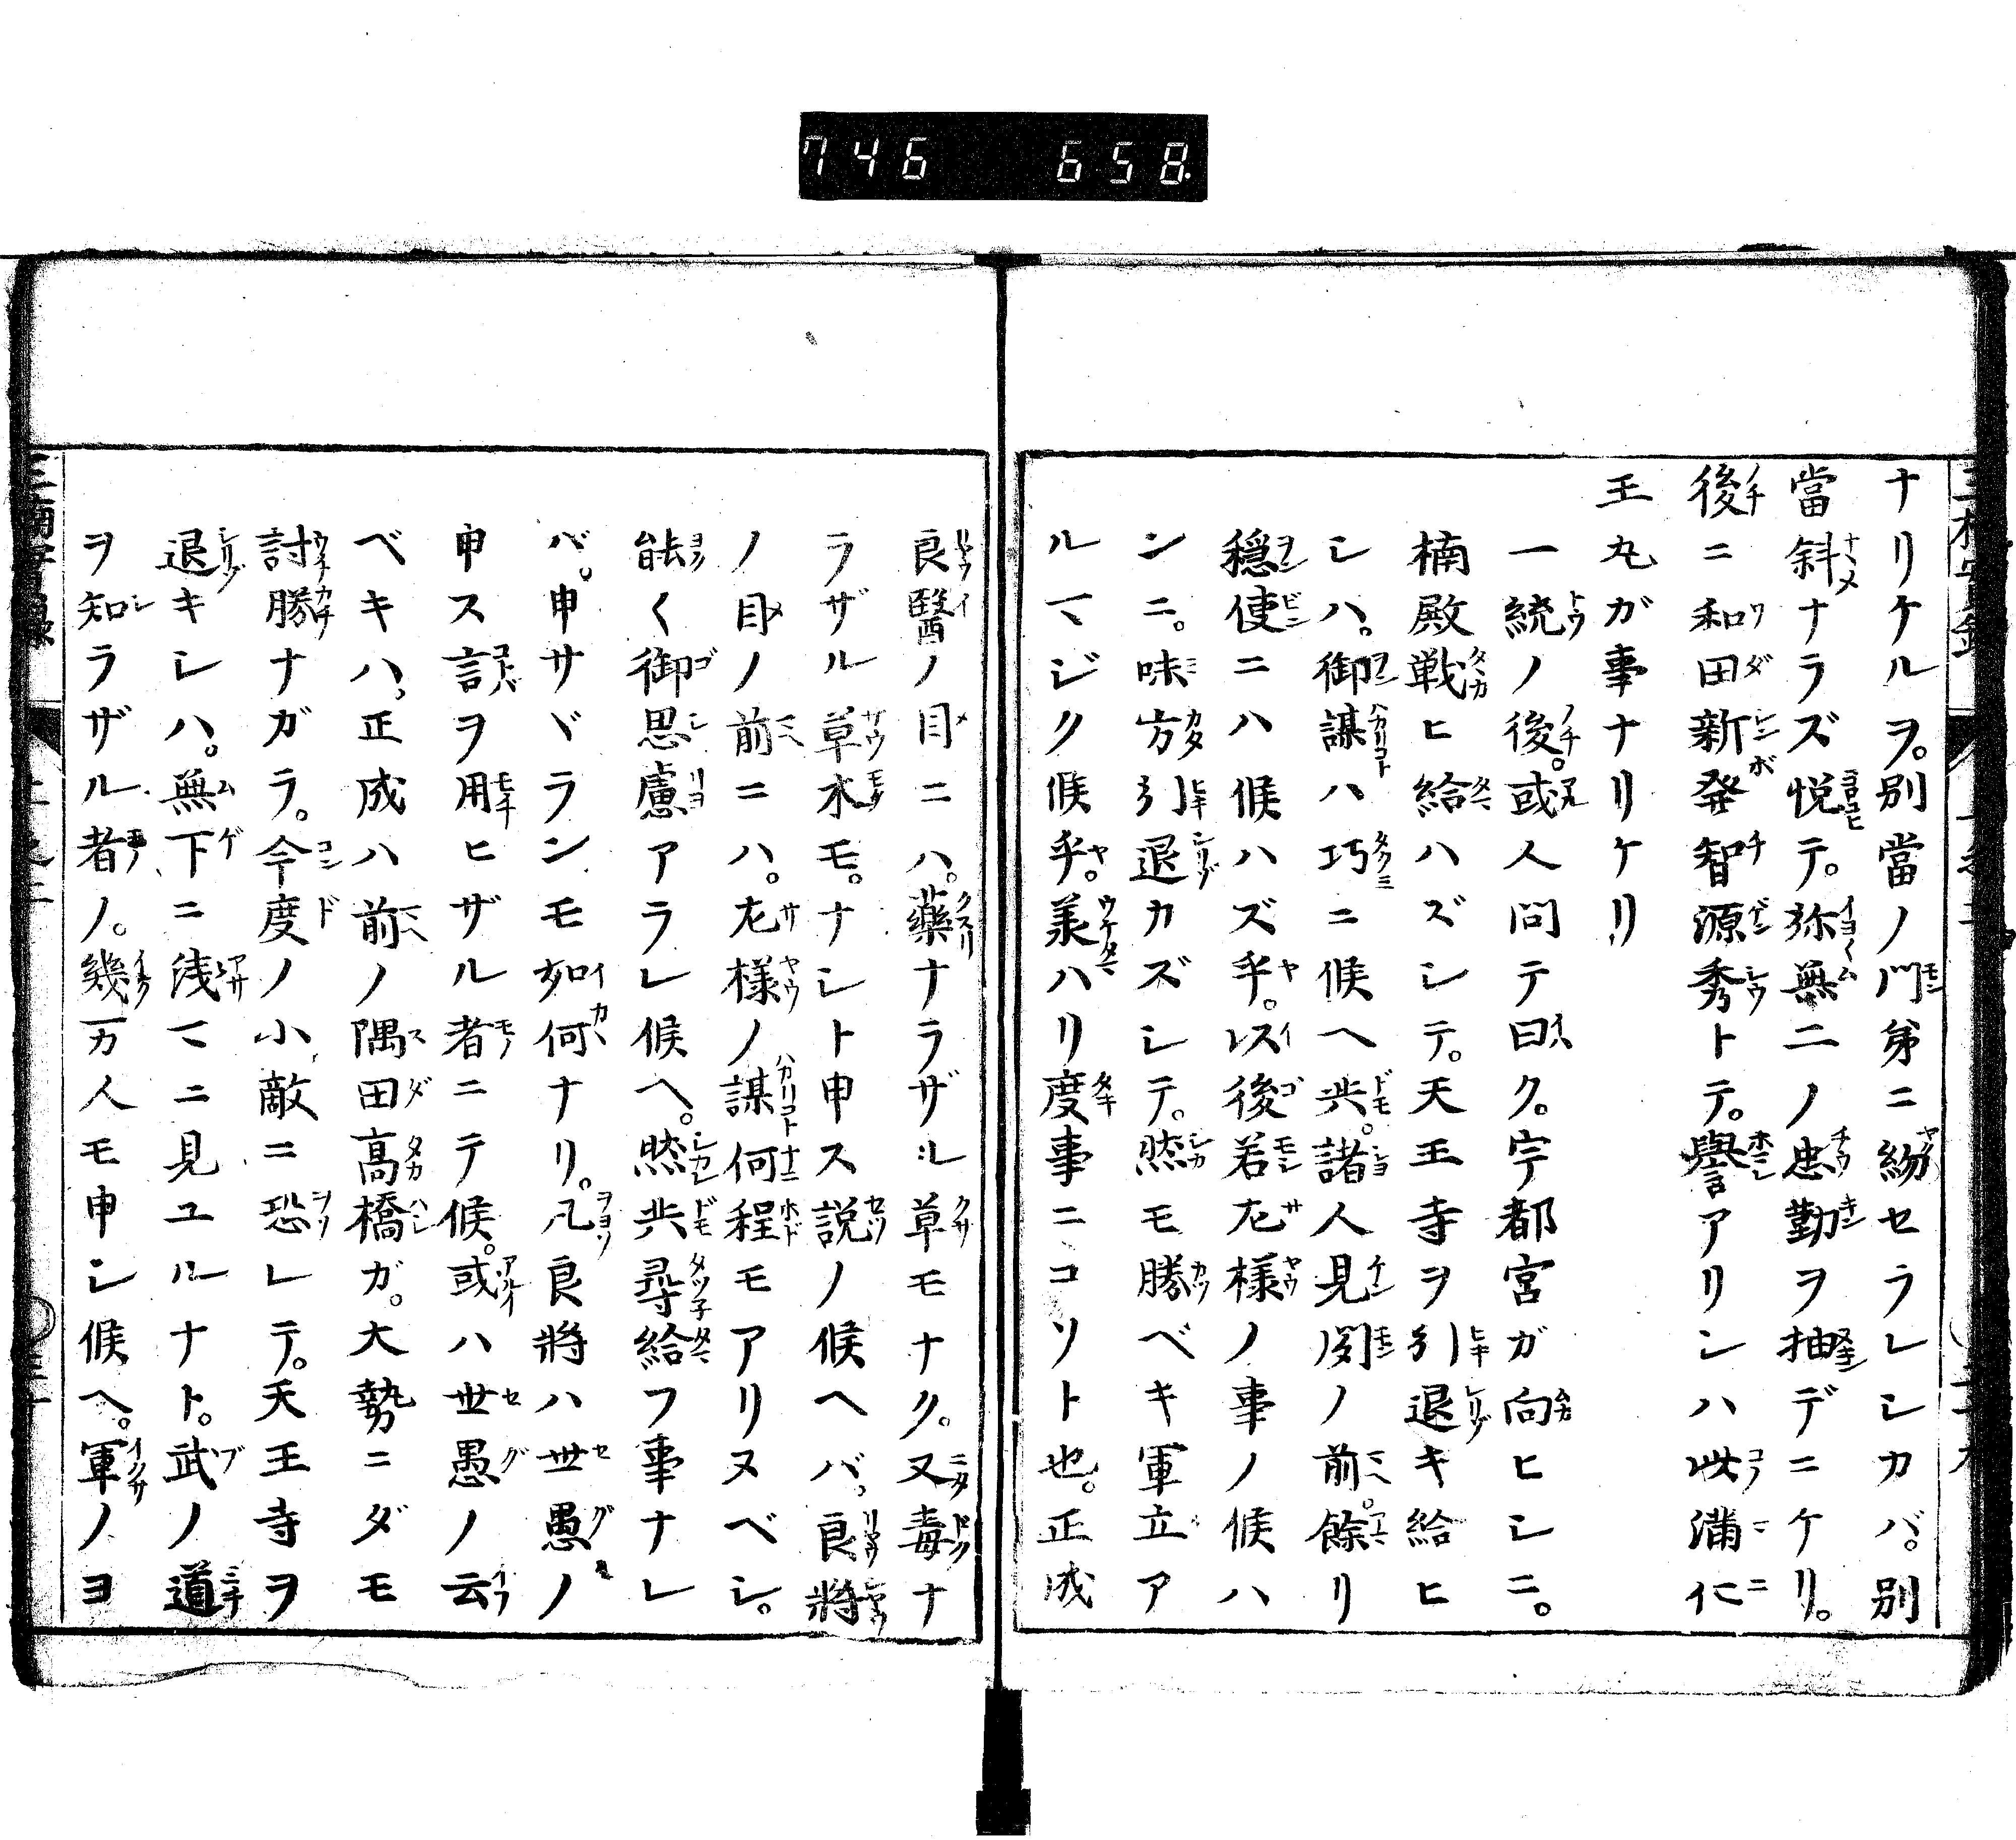 746 658
ナリケルヲ。別當ノ門弟ニ紛セラレシカバ。別
當斜ナラズ悦テ。弥無二ノ忠勤ヲ抽デニケリ。
後ニ和田新発智源秀トテ。譽アリシハ此満仁
王丸ガ事ナリケリ
一統ノ後。或人問テ曰ク。宇都宮ガ向ヒシニ。
楠殿戦ヒ給ハズシテ。天王寺ヲ引退キ給ヒ
シハ。御謀ハ巧ニ候ヘ共。諸人見聞ノ前。餘リ
穏便ニハ候ハズ乎。以後若左様ノ事ノ候ハ
ンニ。味方引退カズシテ。然モ勝ベキ軍立ア
ルマジク候乎。美ハリ度事ニコソト也。正成
良醫ノ目ニハ。藥ナラザル草モナク。又毒ナ
ラザル草木モ。ナシト申ス説ノ候ヘバ。良將
ノ目ノ前ニハ。左様ノ謀何程モアリヌベシ。
能く御思慮アラレ候ヘ。然共尋給フ事ナレ
バ。申サヾランモ如何ナリ。凡良將ハ世愚ノ
申ス言ヲ用ヒザル者ニテ候。或ハ世愚ノ云
ベキハ。正成ハ前ノ隅田高橋ガ。大勢ニダモ
討勝ナガラ。今度ノ小敵ニ恐レテ。天王寺ヲ
退キシハ。無下ニ浅マニ見ユルナト。武ノ道
ヲ知ラザル者ノ。幾万人モ申シ候ヘ。軍ノヨ